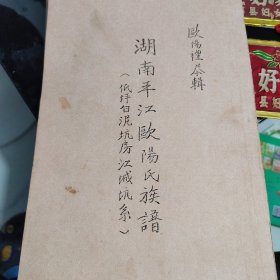 歐陽禮恭輯
湖南平江歐陽氏族譜
(低坪白泥坑房江城坑系)
好
好